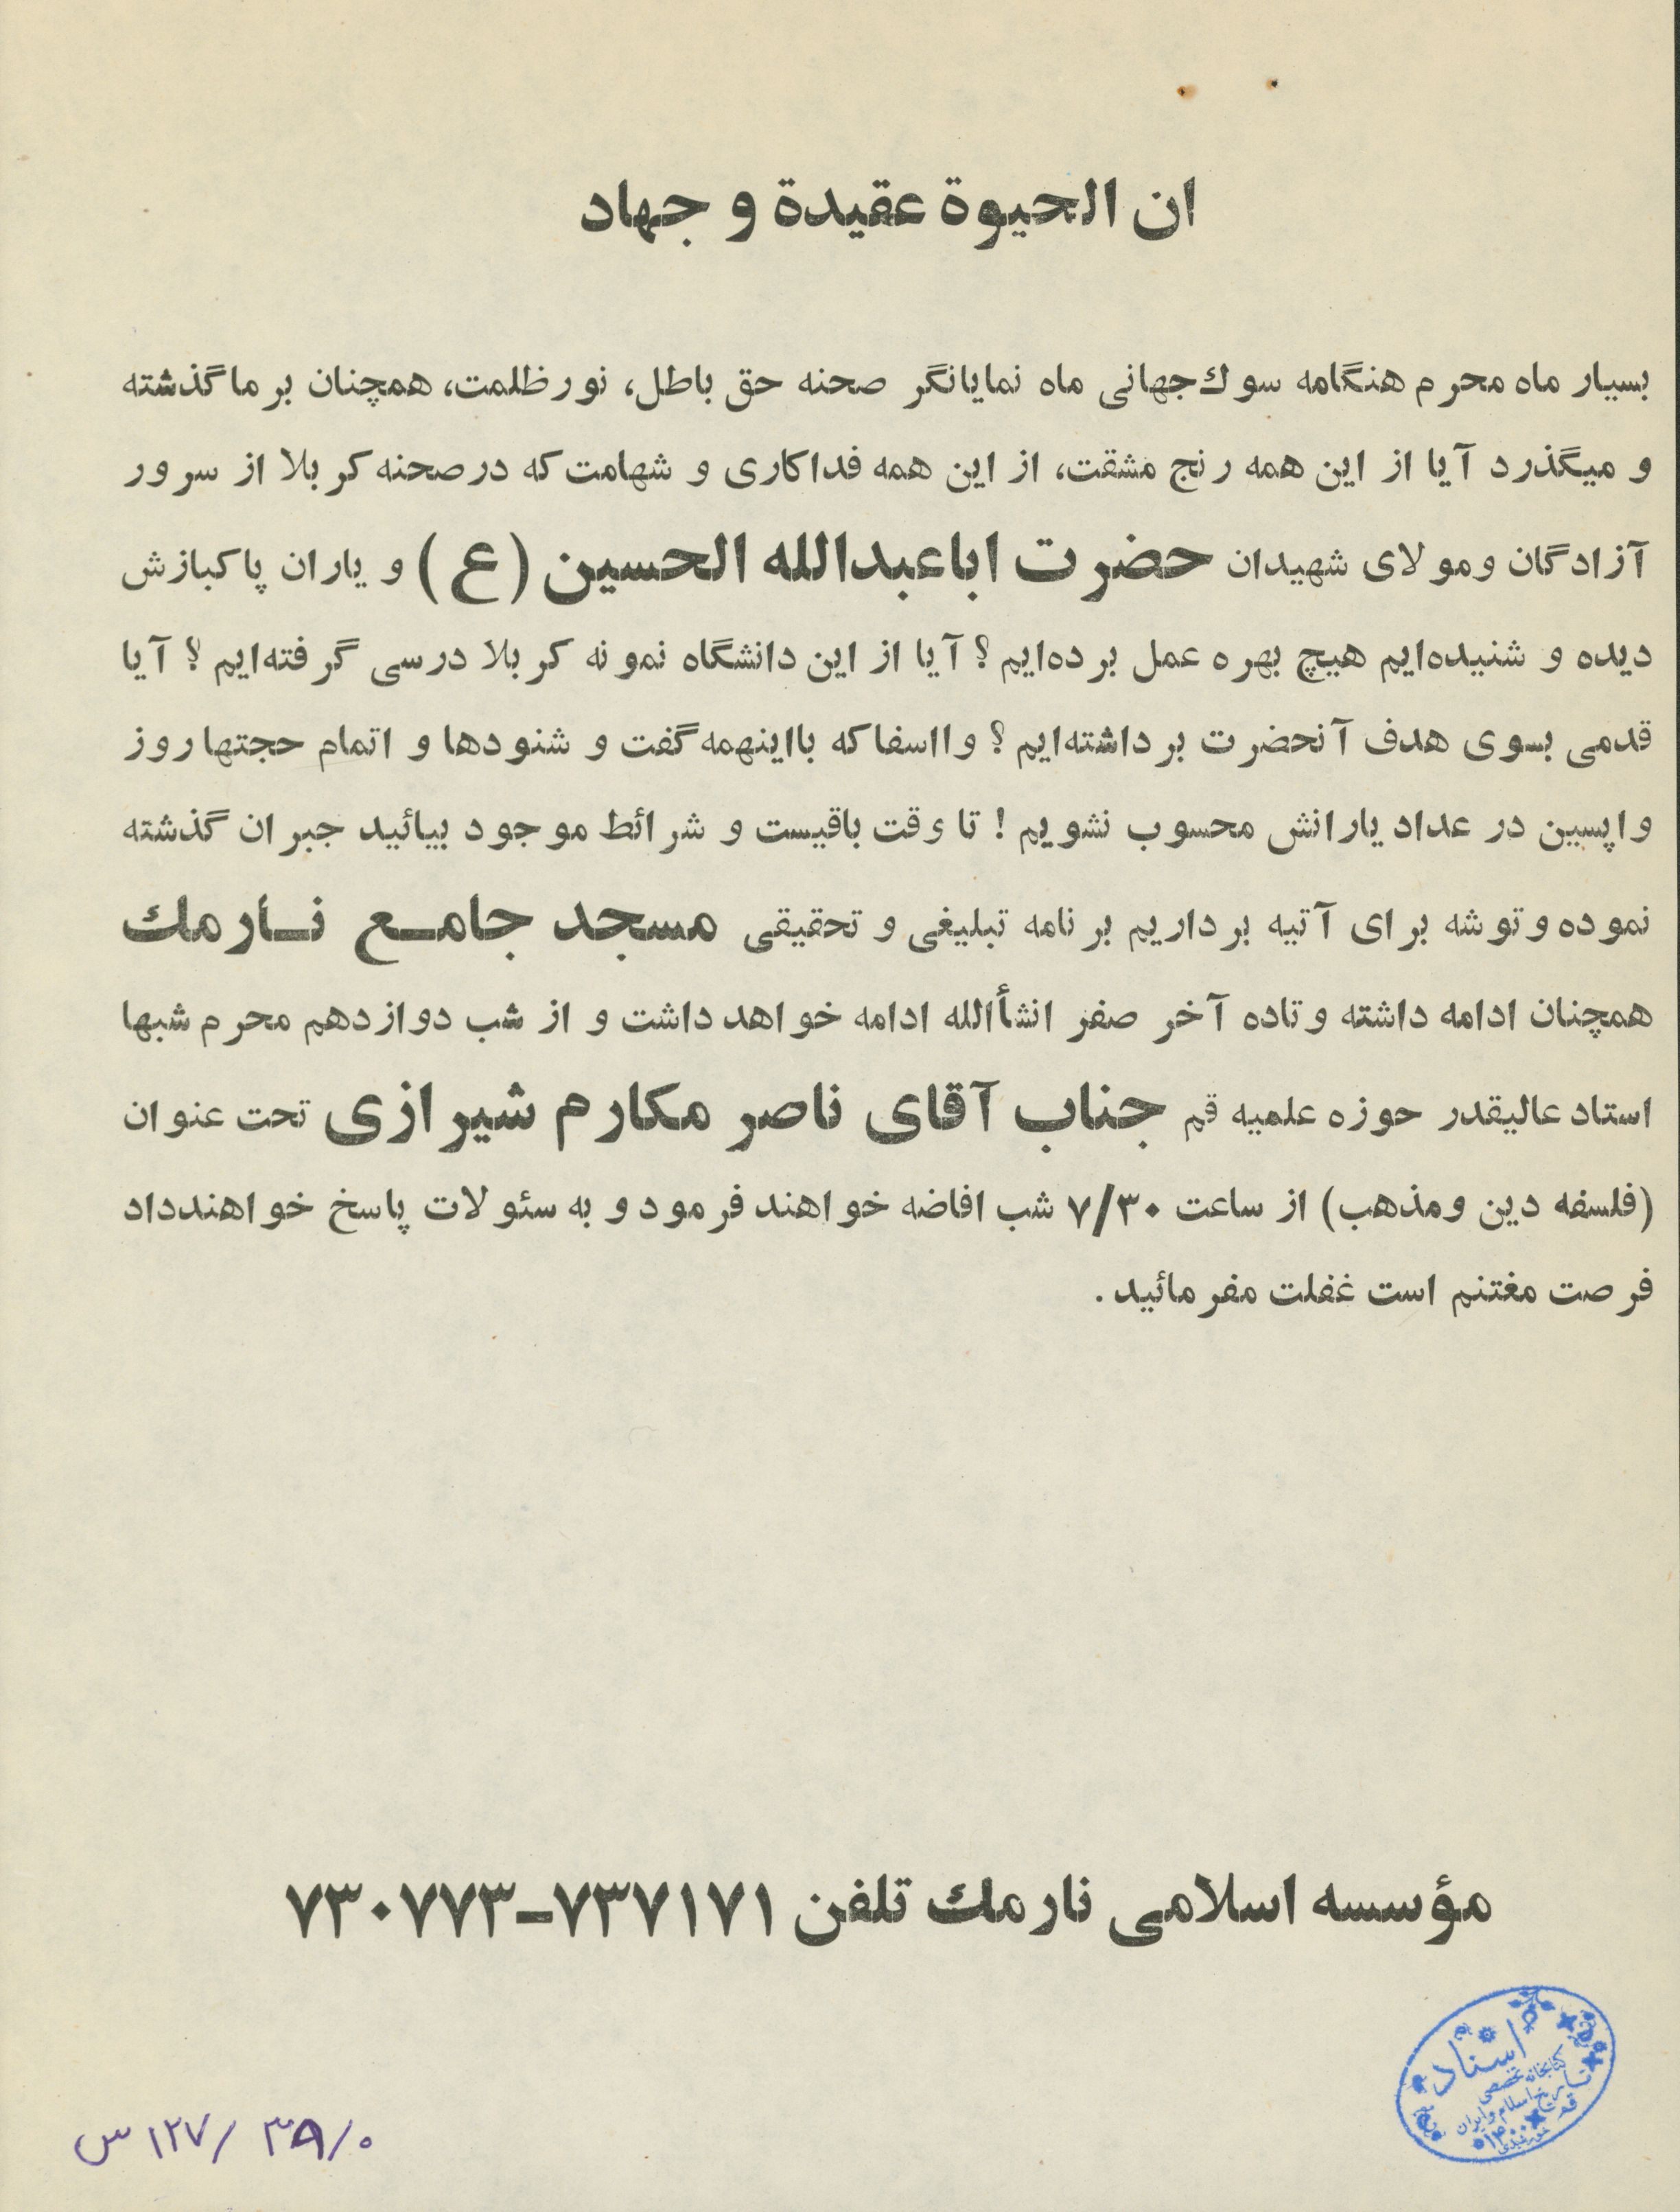 ان الحیوة عقیدة و جهاد
بسیار ماه محرم هنگامه سوك‌جهانی ماه نمایانگر صحنه حق باطل، نورظلمت، همچنان بر ما گذشته
و میگذرد آیا از این همه رنج مشقت، از این همه فداکاری و شهامت که درصحنه کربلا از سرور
آزادگان ومولای شهیدان حضرت اباعبدالله الحسین (ع) و یاران پاکبازش
دیده و شنیده‌ایم هیچ بهره عمل برده‌ایم؟ آیا از این دانشگاه نمونه کربلا درسی گرفته‌ایم؟ آیا
قدمی بسوی هدف آنحضرت برداشته‌ایم؟ وااسفاکه بااینهمه گفت و شنودها و اتمام حجتها روز
واپسین در عداد یارانش محسوب نشویم! تا وقت باقیست و شرائط موجود بیائید جبران گذشته
نموده وتوشه برای آتیه برداریم برنامه تبلیغی و تحقیقی مسجد جامـع نـارمك
همچنان ادامه داشته وتاده آخر صفر انشأالله ادامه خواهد داشت و از شب دوازدهم محرم شبها
استاد عالیقدر حوزه علمیه قم جناب آقای ناصر مکارم شیرازی تحت عنوان
(فلسفه دین ومذهب) از ساعت ۷/۳۰ شب افاضه خواهند فرمود و به سئولات پاسخ خواهندداد
فرصت مغتنم است غفلت مفرمائید.
مؤسسه اسلامی نارمك تلفن ۷۳۷۱۷۱-۷۳۰۷۷۳
اسناد
کتابخانه تخصصی
تاریخ اسلام و ایران
قم
۱۴۰۰
۳۹/۰ /۱۲۷ س